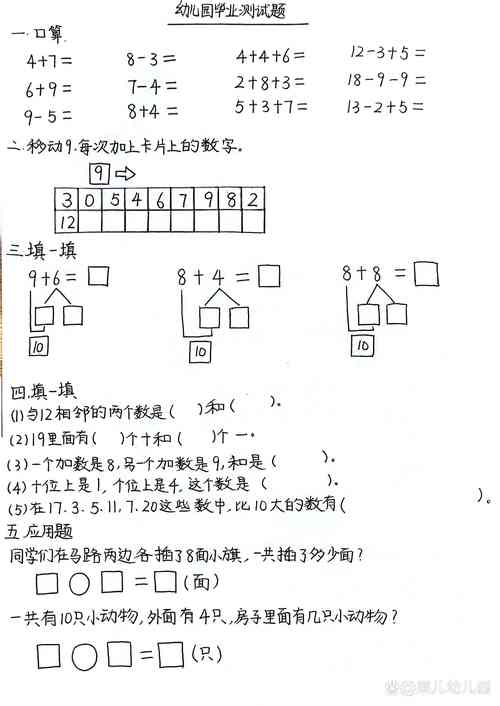 幼儿园毕业测试题
一.口算
4+7=  8-3=  4+4+6=  12-3+5=
6+9=  7-4=  2+8+3=  18-9-9=
9-5=  8+4=  5+3+7=  13-2+5=
二.移动9.每次加上卡片上的数字。
9 ⇨
3 0 5 4 6 7 9 8 2
12
三.填一填
9+6=□  8+4=□  8+8=□
10  10  10
四.填一填
(1)与12相邻的两个数是(  )和(  )。
(2)19里面有(  )个十和(  )个一。
(3)一个加数是8,另一个加数是9,和是(  )。
(4)十位上是1,个位上是4,这个数是(  )。
(5)在17.3.5.11,7.20这些数中,比10大的数有(  )。
五.应用题
同学们在马路两边各插了8面小旗,一共插了多少面?
□○□=□(面)
一共有10只小动物,外面有4只,房子里面有几只小动物?
□○□=□(只)